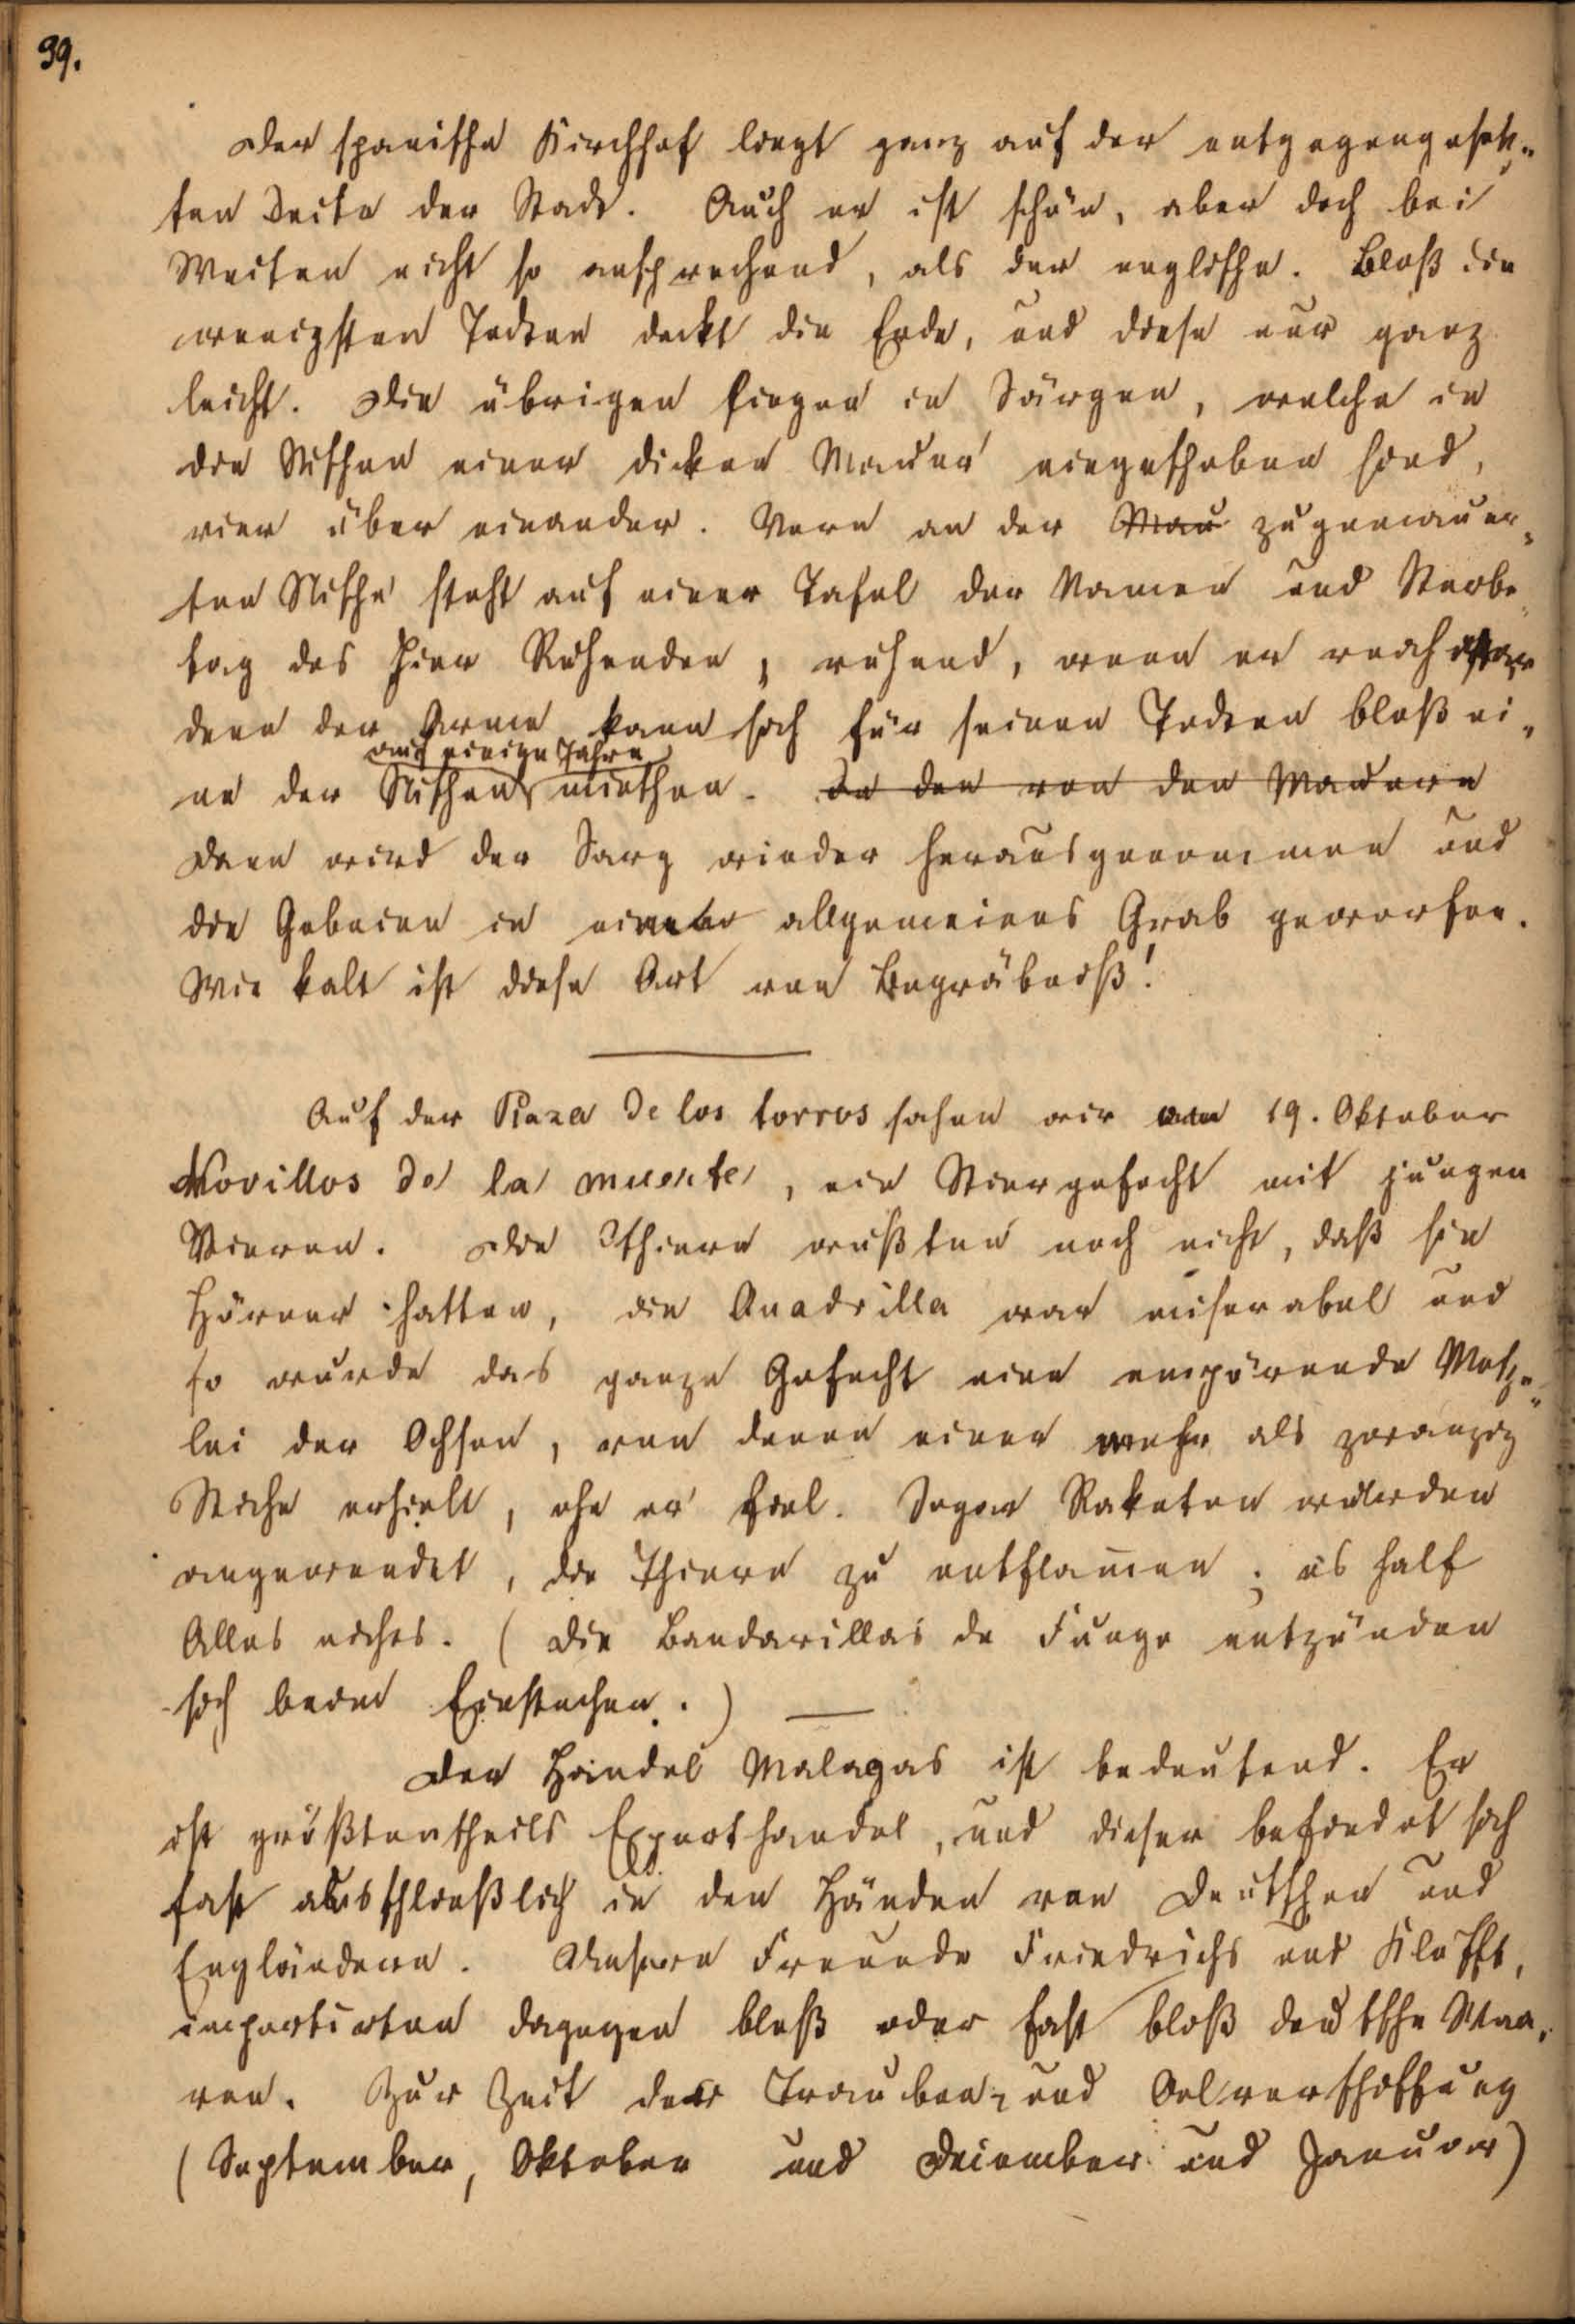 39.
Der spanische Kirchhof liegt ganz auf der entgegengesetz-
ten Seite der Stadt. Auch er ist schön, aber doch bei
Weiten nicht so ansprechend, als der englische. Bloß die
wenigsten Todten deckt die Erde, und diese nur ganz
leicht. Die übrigen liegen in Särgen, welche in
die Nischen einer dicken Mauer eingeschoben sind,
vier über einander. Vorn an der Mau zugemauer-
ten Nische steht auf einer Tafel der Namen und Sterbe-
tag des hier Ruhenden, ruhend, wenn er reich war
denn der Arme kann sich für seinen Todten bloß ei-
auf einige Jahre
ne der Nischen miethen. In den von den Mauern
Dann wird der Sarg wieder herausgenommen und
die Gebeine in ein allgemeines Grab geworfen.
Wie kalt ist diese Art von Begräbniß!
Auf der Plaza de los torros sahen wir am 19. Oktober
Novillos de la muerte, ein Stiergefecht mit jungen
Stieren. Die Thiere wußten noch nicht, daß sie
Hörner hatten, die Quadrilla war miserabel und
so wurde das ganze Gefecht eine empörende Metze-
lei der Ochsen, von denen einer mehr als zwanzig
Stiche erhielt, ehe er fiel. Sogar Raketen wurden
angewendet, die Thiere zu entflam̅en; es half
Alles nichts. (Die Bandarillas de Fuego entzünden
sich beim Einstechen.)
Der Handel Malagas ist bedeutend. Er
ist größtentheils Exporthandel, und dieser befindet sich
fast ausschließlich in den Händen von Deutschen und
Engländern. Unsere Freunde Friedrichs und Klefft,
importirten dagegen bloß oder fast bloß deutsche Waa-
ren. Zur Zeit der Trauben- und Oelverschiffung
(September, Oktober und Dezember und Januar)